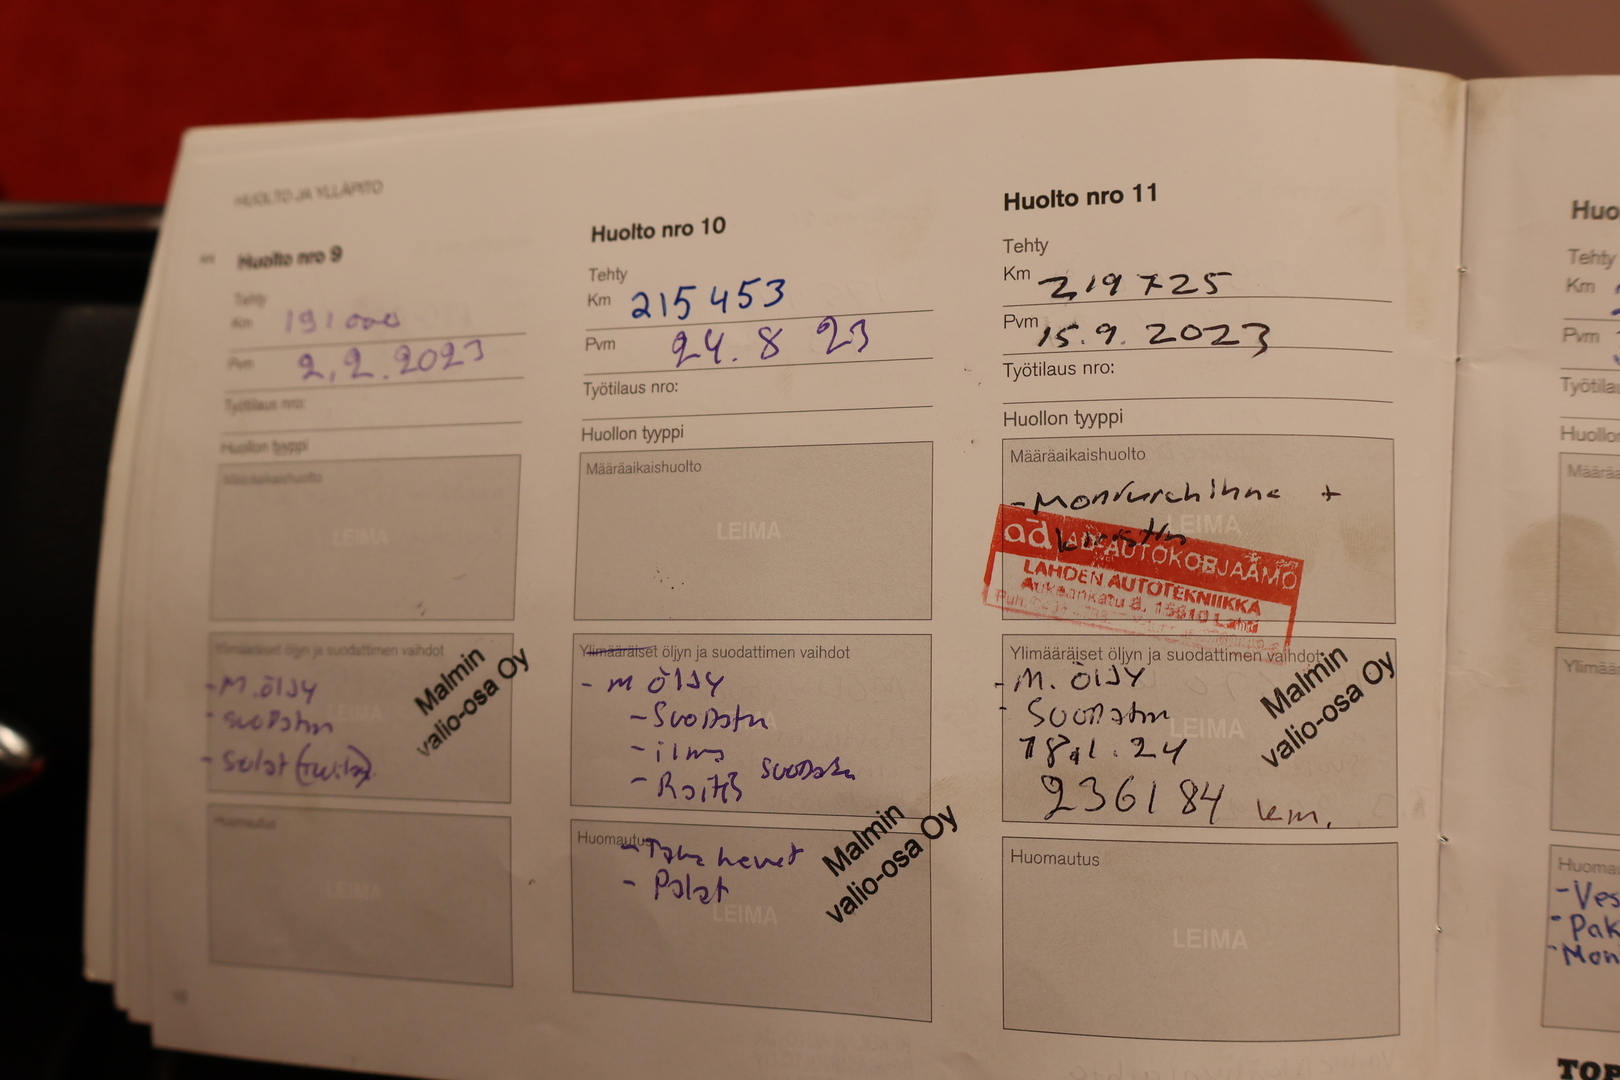 HUOLTO JA YLLÄPITO
Huolto nro 9
Tehty
Km 191000
Pvm 2.2.2023
Työtilaus nro:
Huollon tyyppi
Määräaikaishuolto
LEIMA
Ylimääräiset öljyn ja suodattimen vaihdot
- M.ÖlJY
LEIMA
Malmin
valio-osa Oy
Huomautus
LEIMA
Huolto nro 10
Tehty
Km 215 453
Pvm 24.8 23
Työtilaus nro:
Huollon tyyppi
Määräaikaishuolto
LEIMA
Ylimääräiset öljyn ja suodattimen vaihdot
- M ÖlJY
Huomautus
- Palat
LEIMA
Malmin
valio-osa Oy
Huolto nro 11
Tehty
Km 219725
Pvm 15.9.2023
Työtilaus nro:
Huollon tyyppi
Määräaikaishuolto
+
LEIMA
ad AD-AUTOKORJAAMO
LAHDEN AUTOTEKNIIKKA
Aukeankatu 8, 15610 Lahti
Ylimääräiset öljyn ja suodattimen vaihdot
- M. ÖlJY
LEIMA
236184 km.
Malmin
valio-osa Oy
Huomautus
LEIMA
Huo
Tehty
Km
Pvm
Työtila
Huollon
Määräa
Ylimää
Huomau
- Ves
- Pak
- Mon